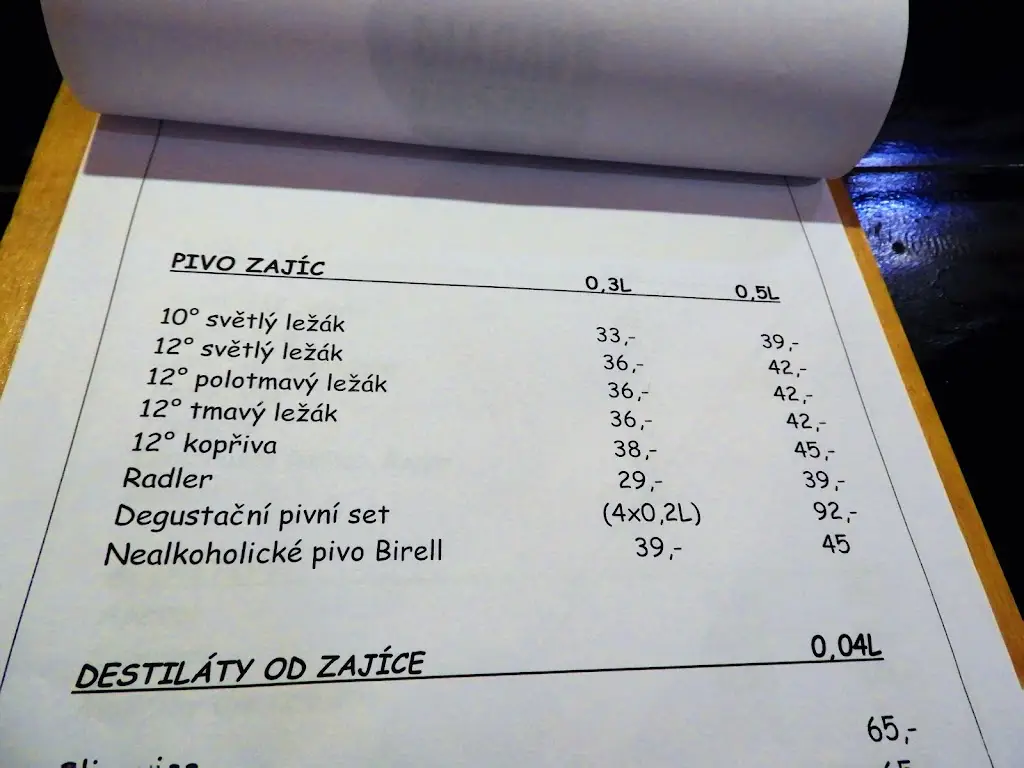 PIVO ZAJÍC 0,3L 0,5L
10° světlý ležák 33,- 39,-
12° světlý ležák 36,- 42,-
12° polotmavý ležák 36,- 42,-
12° tmavý ležák 36,- 42,-
12° kopřiva 38,- 45,-
Radler 29,- 39,-
Degustační pivní set (4x0,2L) 92,-
Nealkoholické pivo Birell 39,- 45
DESTILÁTY OD ZAJÍCE 0,04L
65,-